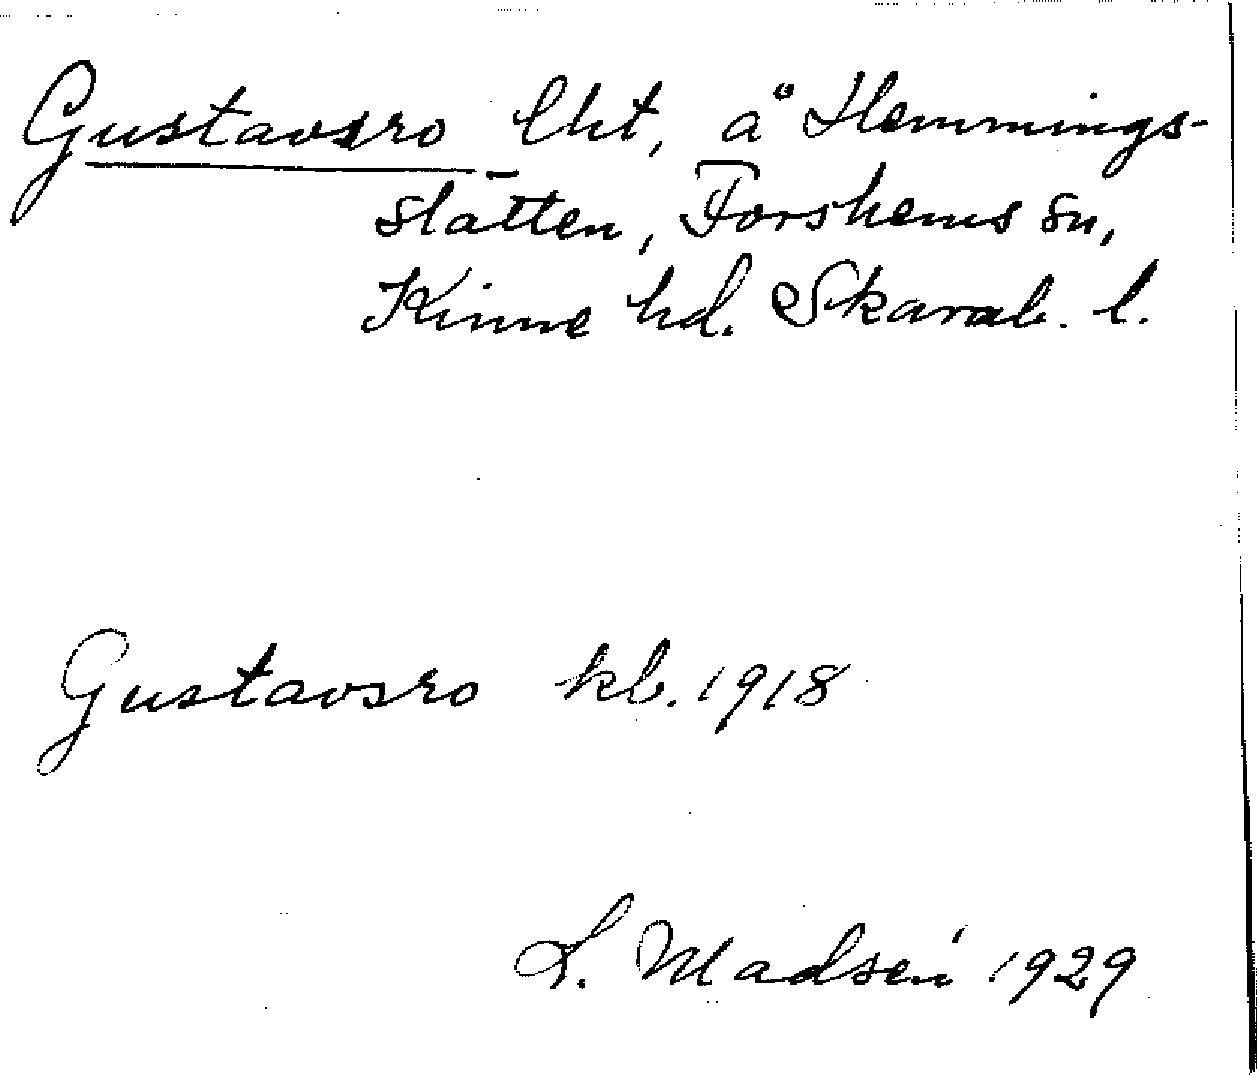 Gustavsro lht, å Hemmings-
slätten, Forshems sn,
Kinne hd. Skarab. l.
Gustavsro kb. 1918
L. Madsén 1929